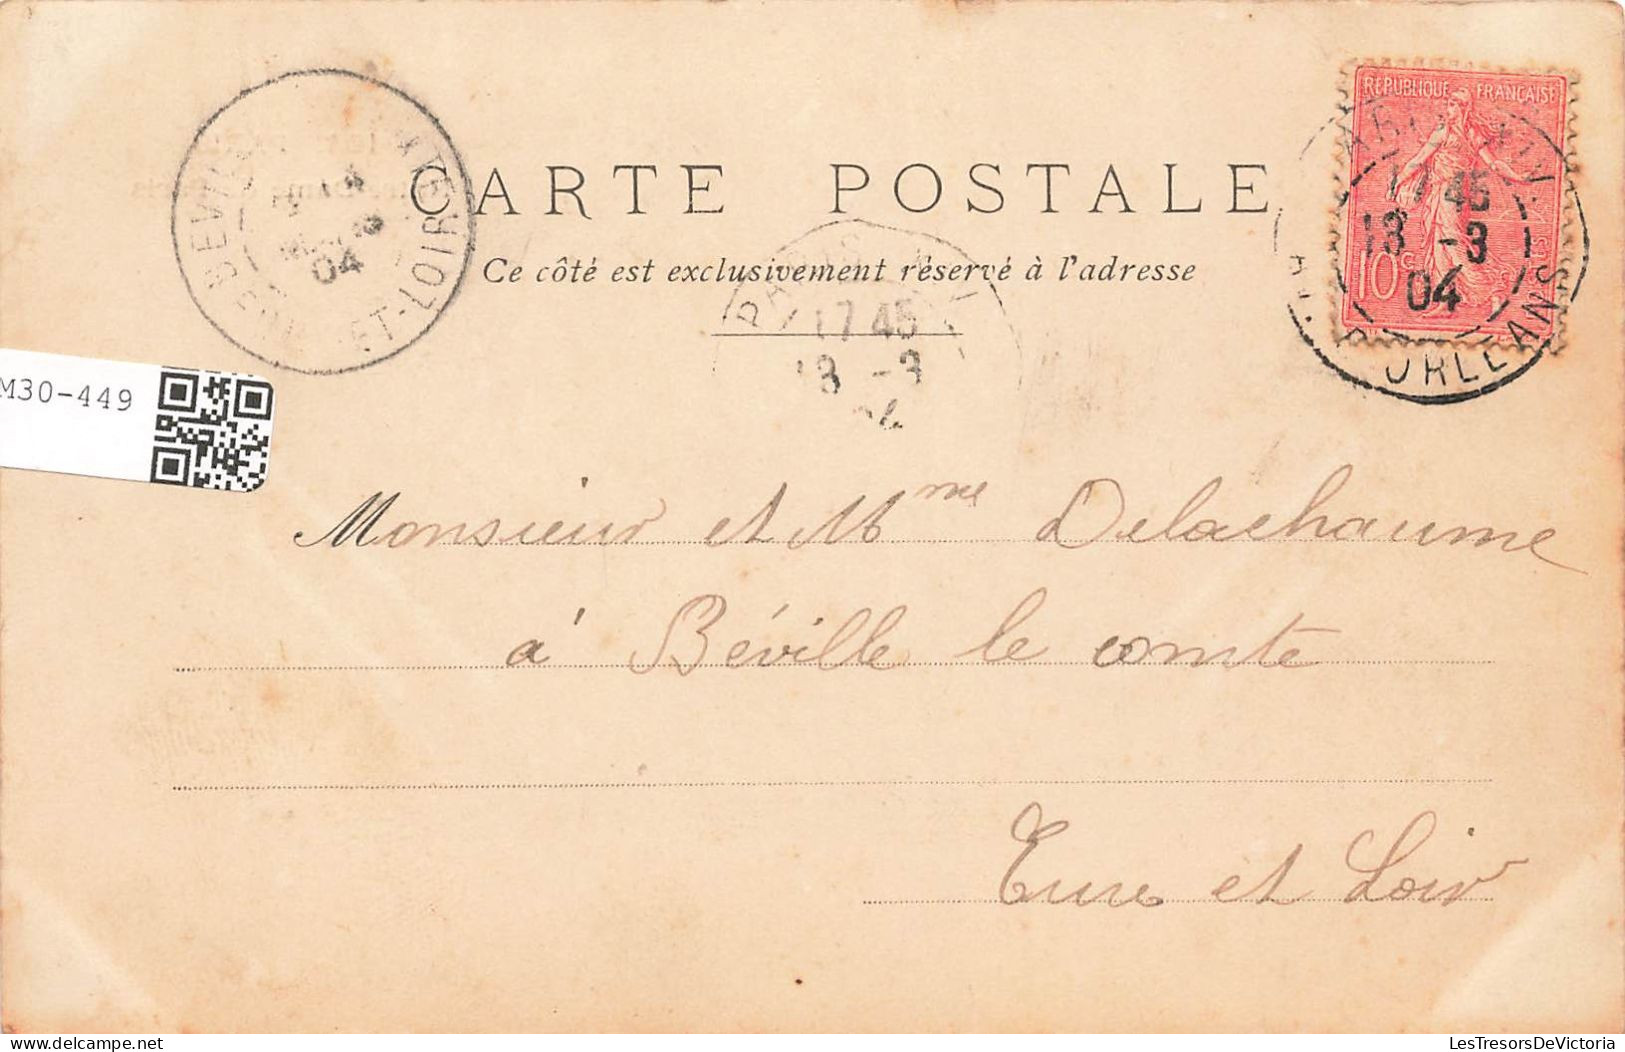 CARTE POSTALE
Ce côté est exclusivement réservé à l'adresse
RÉPUBLIQUE FRANÇAISE
10 C
17 45
13 -3
04
ORLEANS
PARIS
17 45
13 -3
04
ET-LOIR
04
M30-449
Monsieur et Mme Delachaume
à Béville le comte
Eure et Loir
LesTresorsDeVictoria